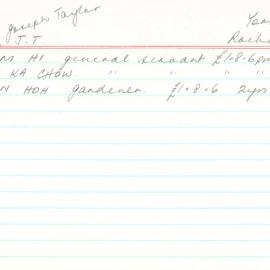 Joseph Taylor
J.T.
HI general servant £1.8.6
KA CHOW " " "
HOH gardener £1.8.6 2 yrs